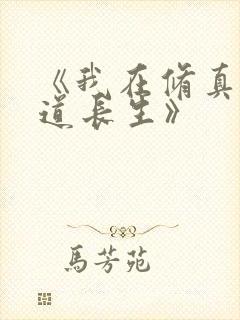 《我在脩真
道長生》
馬芳苑